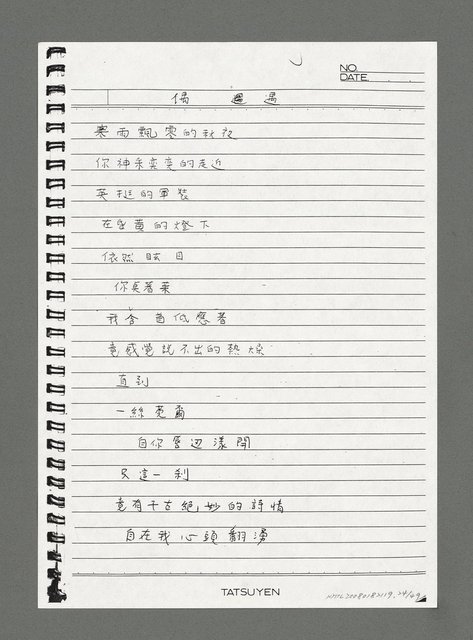 NO.
DATE
偶遇
寒雨飄零的秋夜
你神采奕奕的走近
英挺的軍裝
在昏黃的燈下
依然眩目
你莫著菓
我含首低應著
竟感覺說不出的熱燥
直到
一絲莞爾
自你唇边漾開
只這一刹
竟有千古絕妙的詩情
自在我心頭翻湧
TATSUYEN